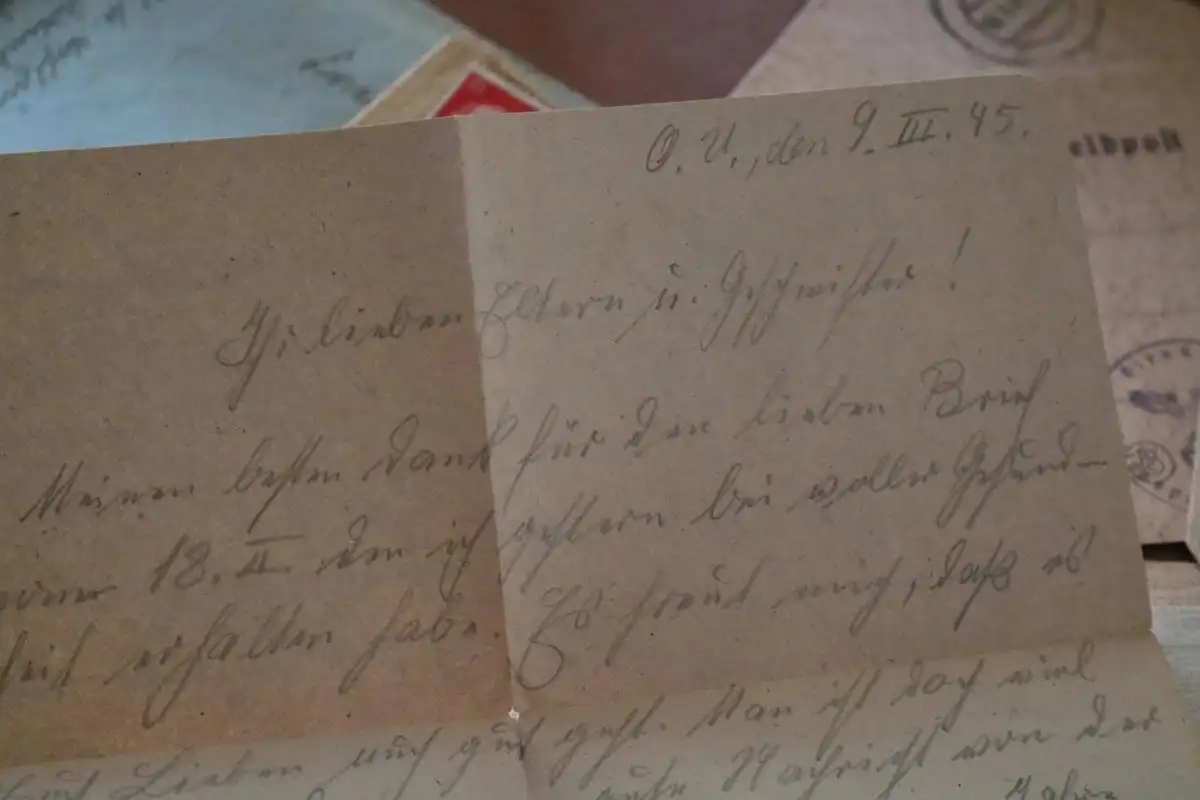 O. U., den 9. III. 45.
Ihr lieben Eltern u. Geschwister!
Meinen besten Dank für den lieben Brief
vom 18. II den ich gestern bei voller Gesund-
heit erhalten habe. Es freut mich, daß es
Euch Lieben auch gut geht. Man ist doch viel
gute Nachricht von der